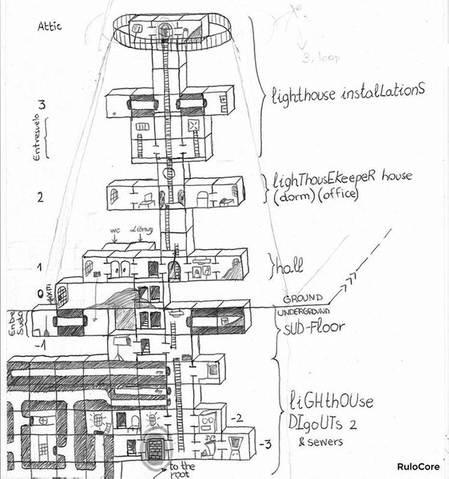 Attic
3. loop
3
lighthouse instalLationS
Entresuelo
2
lighThousEkeepeR house
(dorm) (office)
wc
1
hall
0
GROUND
UNDERGROUND
-1
SUD-FloOR
liGHthOUse
DIgoUTs 2
& sewers
-2
-3
to the
root
RuloCore